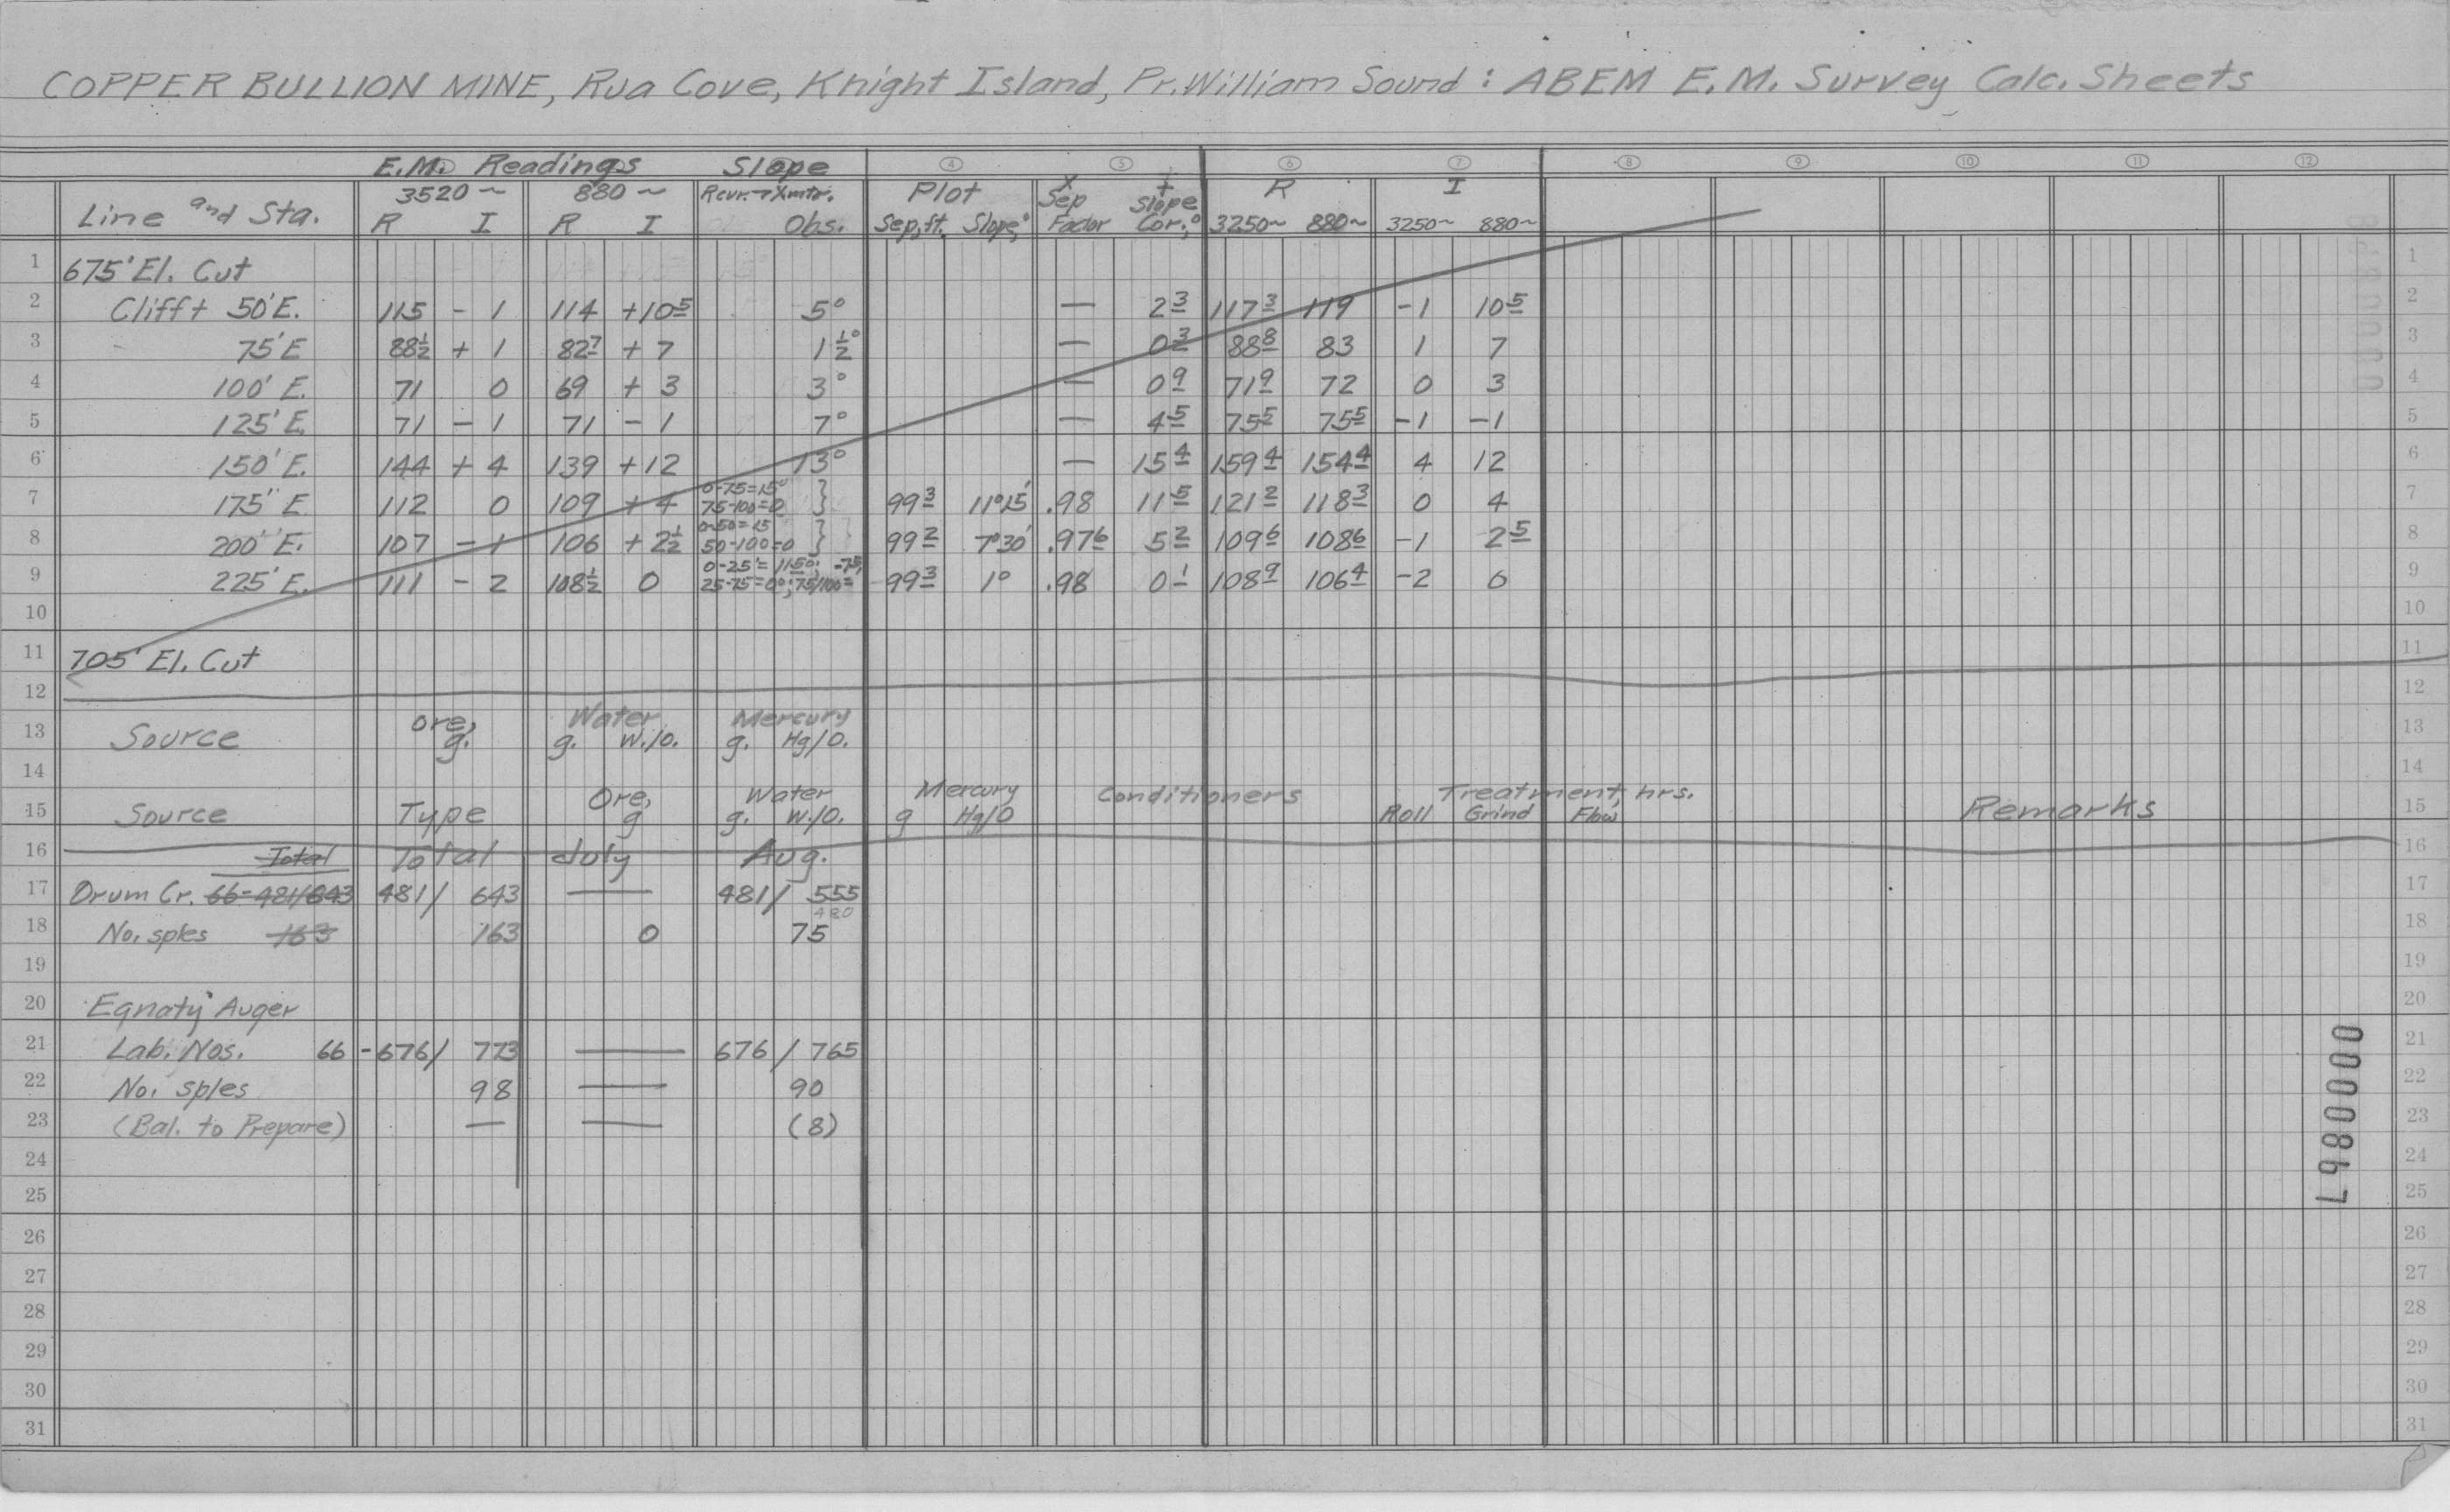 COPPER BULLION MINE, Rua Cove, Knight Island, Pr. William Sound : ABEM E.M. Survey Calc. Sheets
E.M. Readings Slope ④ ⑤ ⑥ ⑦ ⑧ ⑨ ⑩ ⑪ ⑫
3520~ 880~ Rcvr.→Xmtr. Plot X Sep + Slope R I
Line and Sta. R I R I Obs. Sep,ft. Slope,° Factor Cor.,° 3250~ 880~ 3250~ 880~
1 675' El. Cut 1
2 Cliff+ 50'E. 115 - 1 114 +10 5 5° — 2 3 117 3 119 -1 10 5 2
3 75'E 88½ + 1 82 7 + 7 1½° — 0 3 88 8 83 1 7 3
4 100' E. 71 0 69 + 3 3° — 0 9 71 9 72 0 3 4
5 125' E. 71 - 1 71 - 1 7° — 4 5 75 5 75 5 -1 -1 5
6 150' E. 144 + 4 139 +12 13° — 15 4 159 4 154 4 4 12 6
7 175' E. 112 0 109 + 4 0-75=15° 75-100=0 } 99 3 11°15' .98 11 5 121 2 118 3 0 4 7
8 200' E. 107 - 1 106 + 2½ 0-50=15 50-100=0 } 99 2 7°30' .97 6 5 2 109 6 108 6 -1 2 5 8
9 225' E. 111 - 2 108½ 0 0-25'= 11.5°; -7.5, 25-75=0°; 75/100= 99 3 1° .98 0 1 108 9 106 4 -2 0 9
10 10
11 705' El. Cut 11
12 12
13 Source Ore, g. Water g. W./O. Mercury g. Hg/O. 13
14 14
15 Source Type Ore, g Water g. W./O. Mercury g Hg/O Conditioners Treatment, hrs. Roll Grind Flow Remarks 15
16 Total Total July Aug. 16
17 Drum Cr. 66-481/643 481/ 643 — 481/ 555 17
480
18 No. sples 163 163 0 75 18
19 19
20 Egnaty Auger 20
21 Lab. Nos. 66 -676/ 773 — 676 / 765 21
22 No. sples 98 — 90 22
23 (Bal. to Prepare) — — (8) 23
24 24
25 25
26 26
27 27
28 28
29 29
30 30
31 31
0000867